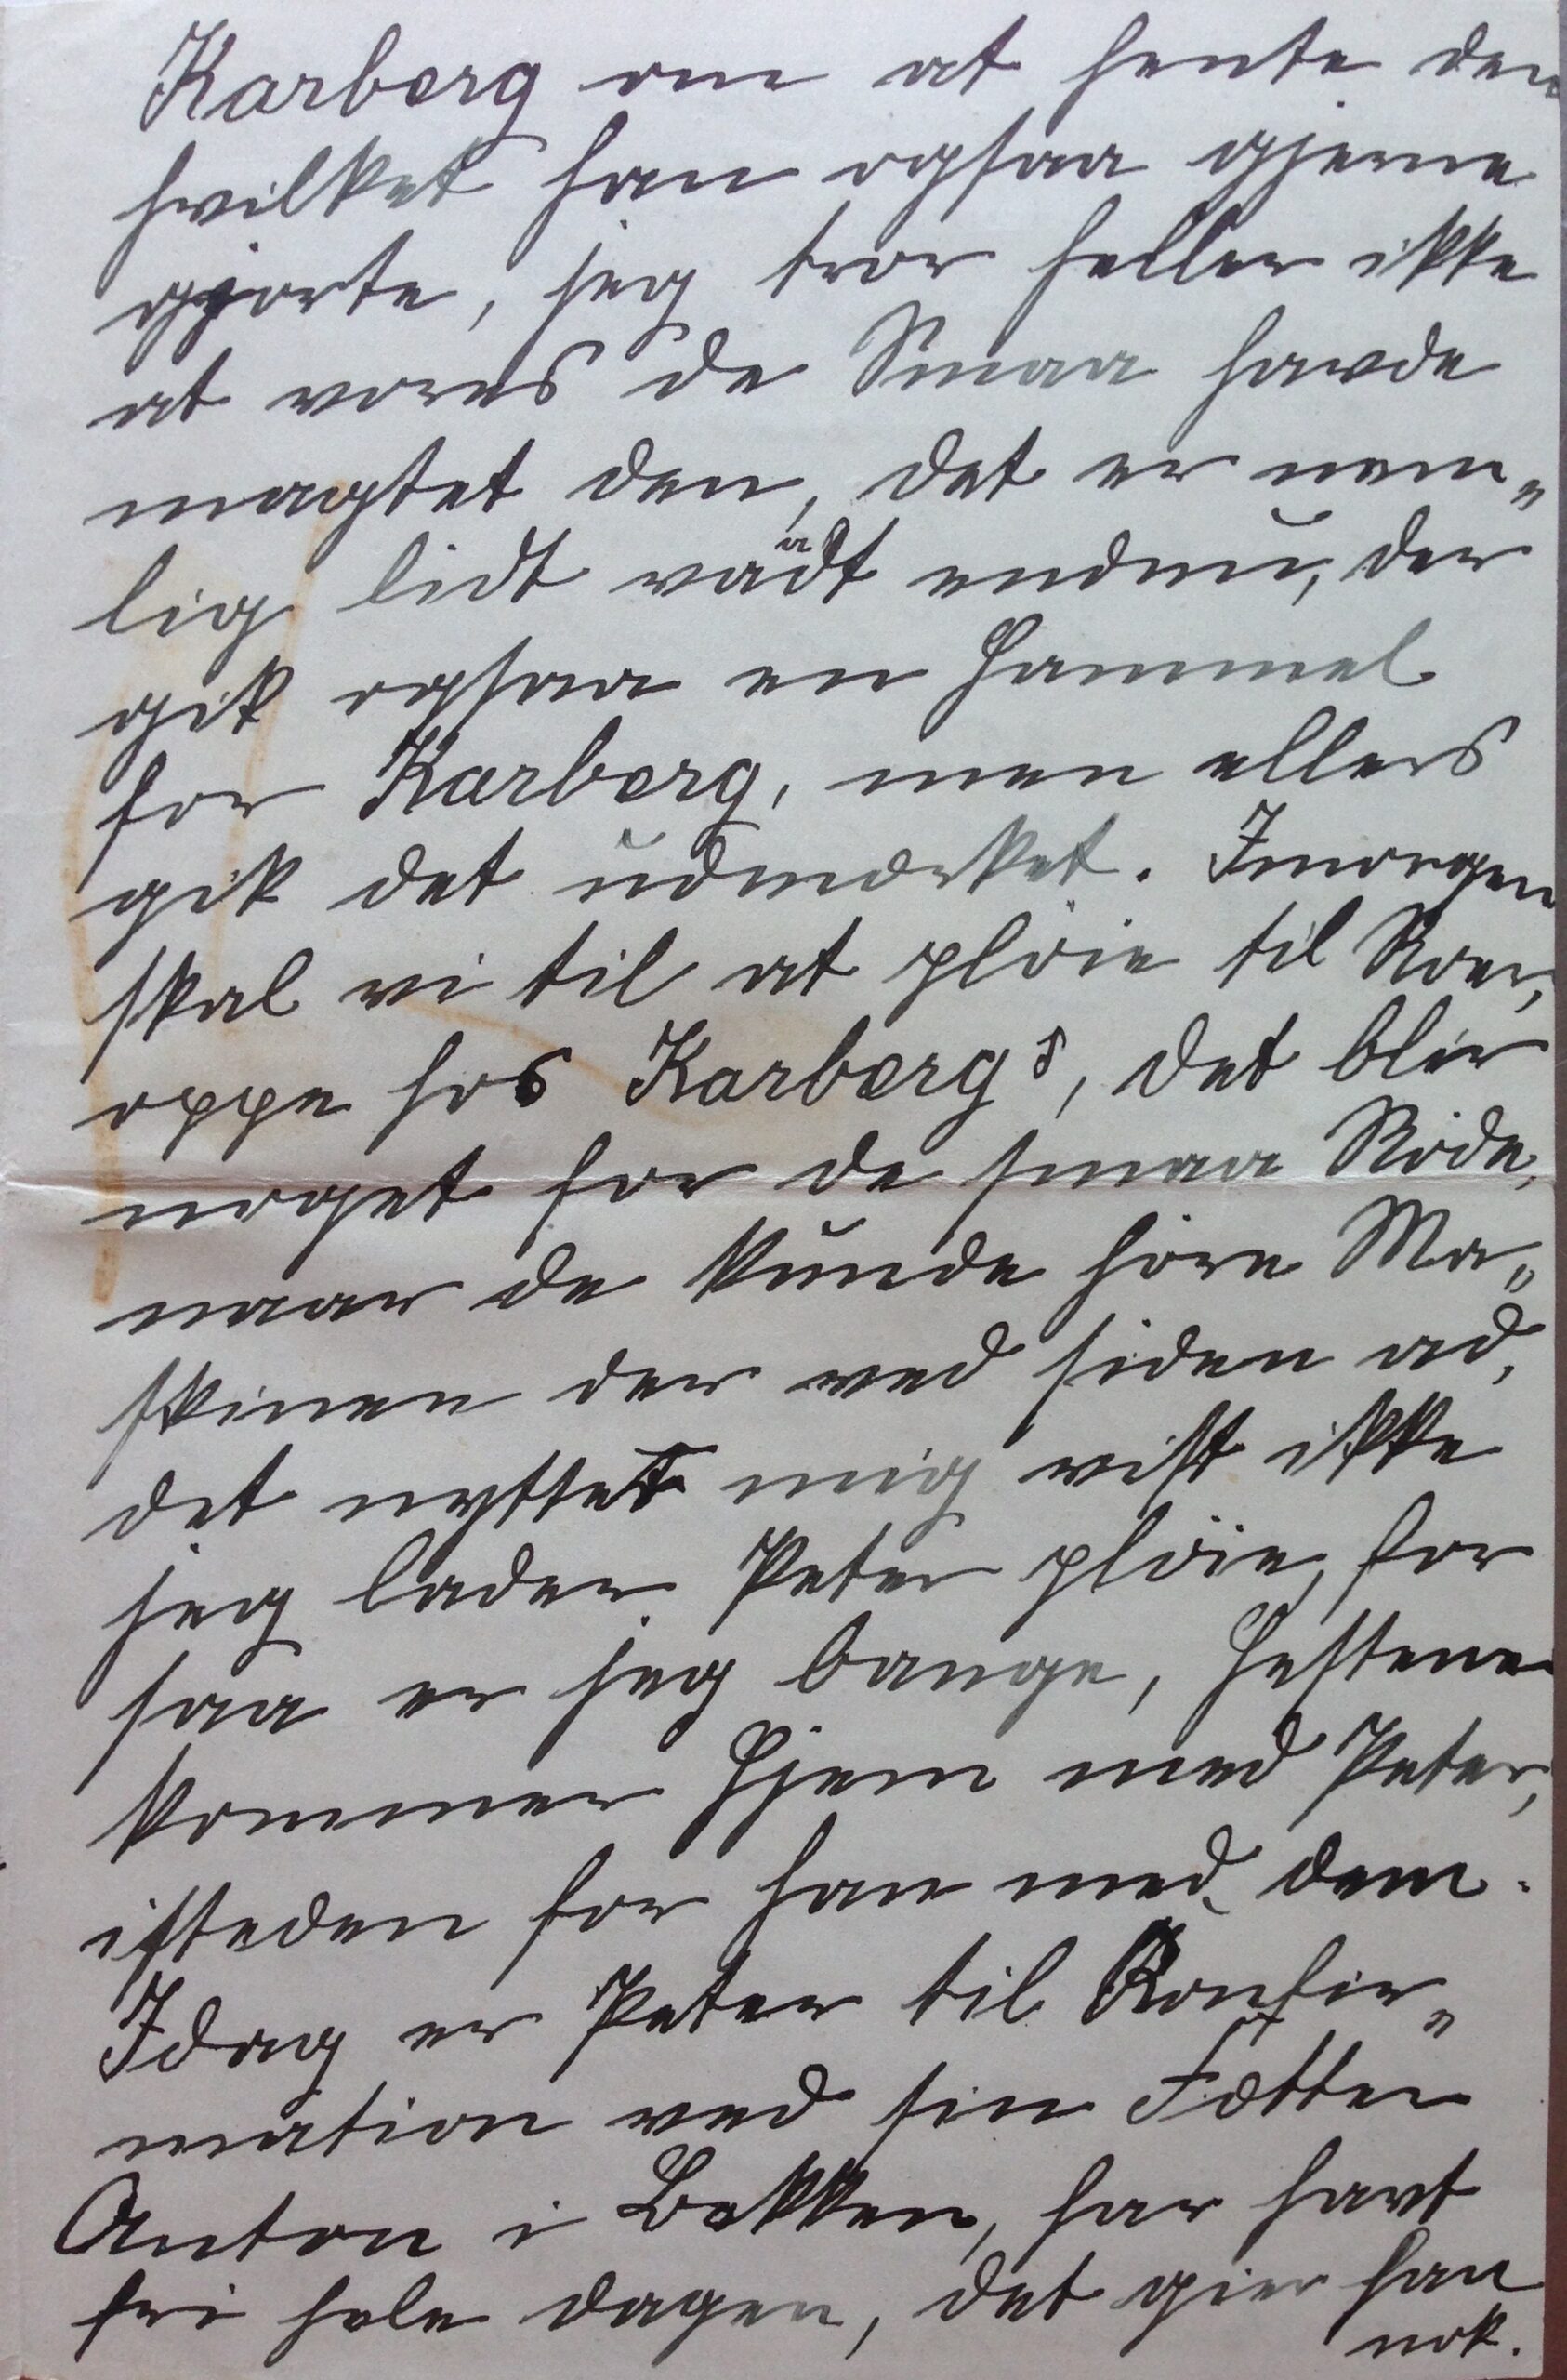 Karberg om at hente den
hvilket han ogsaa gjerne
gjorte, jeg tror heller ikke
at vores de Smaa havde
magtet den, det er nem„
lig lidt vaadt endnu, der
gik ogsaa en Hammel
for Karberg, men ellers
gik det udmærket. Imorgen
skal vi til at plöie til Roer,
oppe hos Karbergs, det blir
noget for de smaa Röde,
naar de kunde höre Ma„
skinen der ved siden ad,
det nyttet mig vist ikke
jeg lader Peter plöie, for
saa er jeg bange, Hestene
kommer Hjem med Peter,
isteden for han med dem.
Idag er Peter til Konfir„
mation ved sin Fætter
Anton i Bække, har havt
fri hele dagen, det gier han
nok.